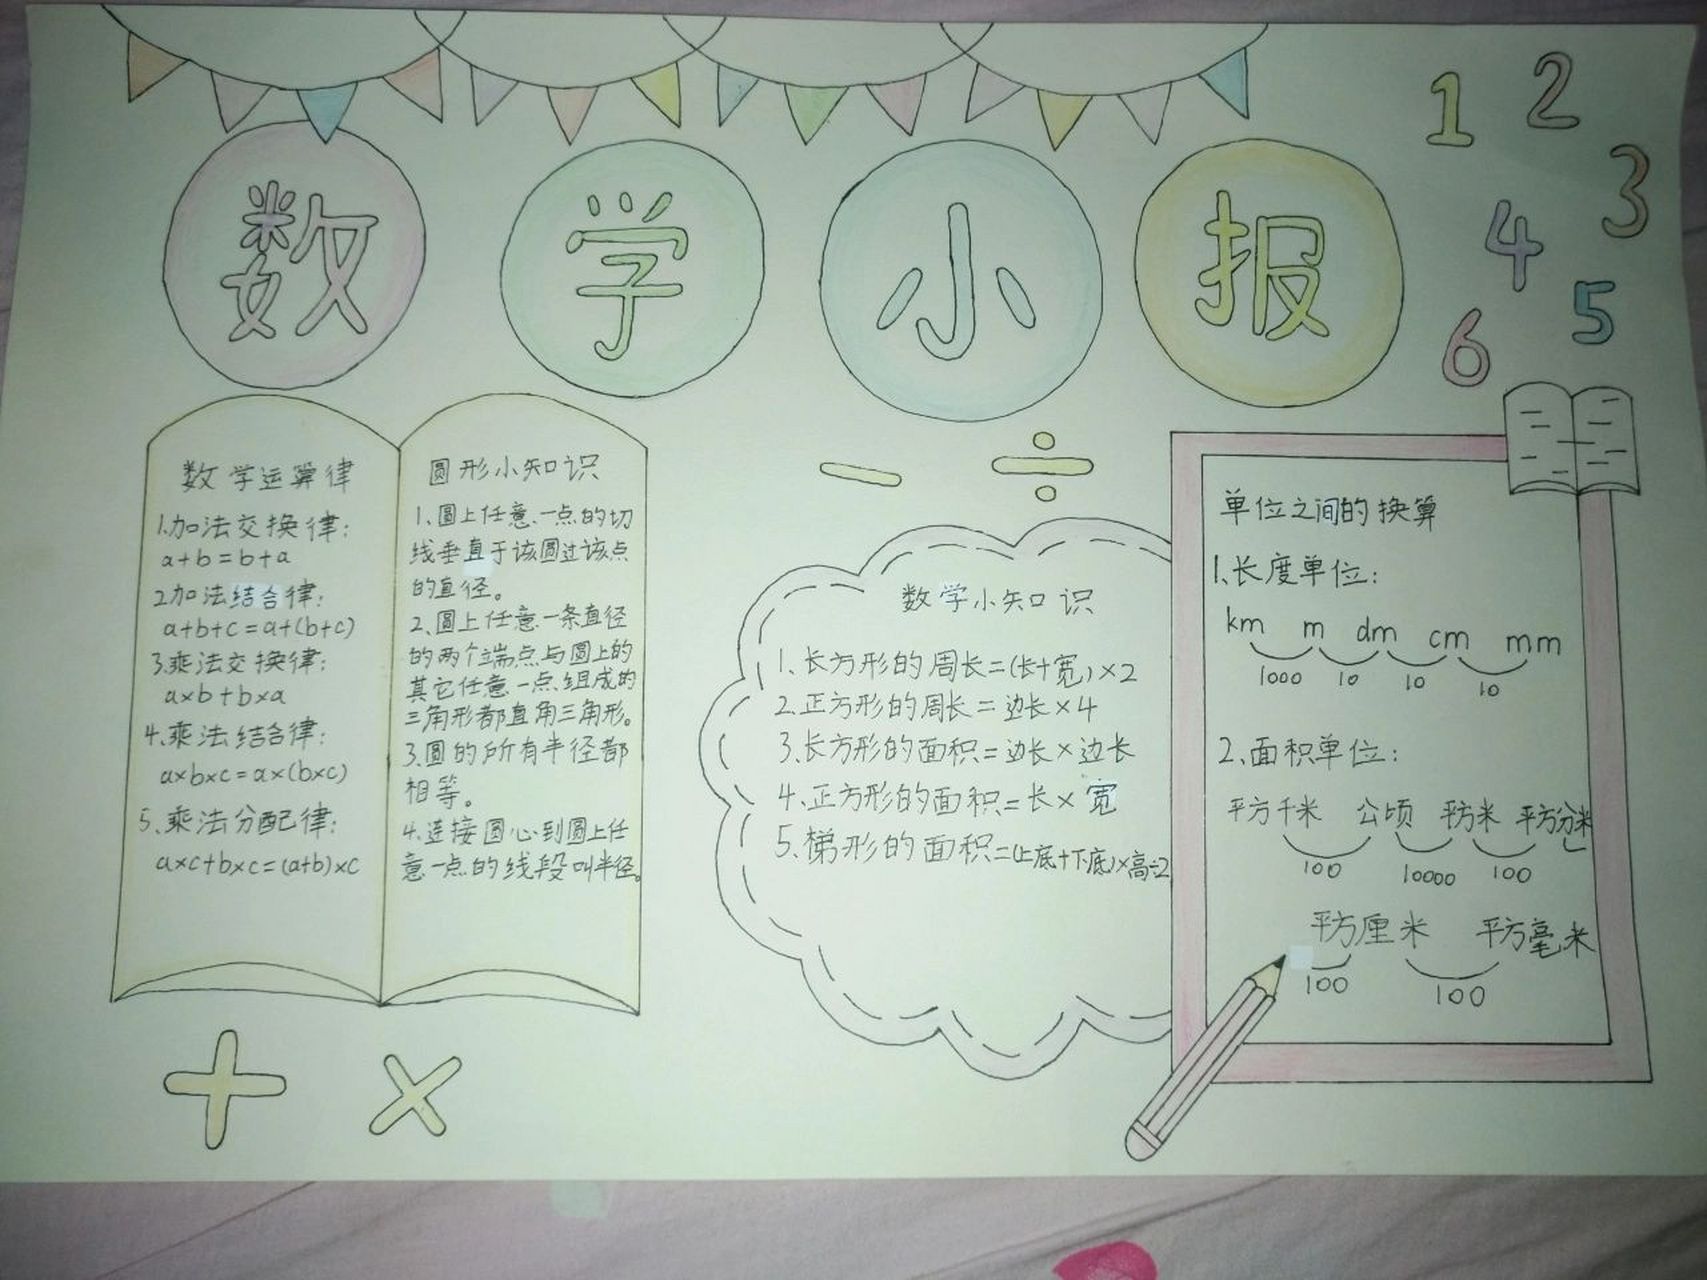 数学小报
1
2
3
4
5
6
数学运算律
1.加法交换律:
a+b=b+a
2.加法结合律:
a+b+c=a+(b+c)
3.乘法交换律:
a×b+b×a
4.乘法结合律:
a×b×c=a×(b×c)
5.乘法分配律:
a×c+b×c=(a+b)×c
圆形小知识
1、圆上任意一点的切
线垂直于该圆过该点
的直径。
2、圆上任意一条直径
的两个端点与圆上的
其它任意一点组成的
三角形都直角三角形。
3.圆的所有半径都
相等。
4.连接圆心到圆上任
意一点的线段叫半径。
− ÷
数学小知识
1.长方形的周长=(长+宽)×2
2.正方形的周长=边长×4
3.长方形的面积=边长×边长
4.正方形的面积=长×宽
5.梯形的面积=(上底+下底)×高÷2
单位之间的换算
1.长度单位:
km m dm cm mm
1000 10 10 10
2.面积单位:
平方千米 公顷 平方米 平方分米
100 10000 100
平方厘米 平方毫米
100 100
+ ×